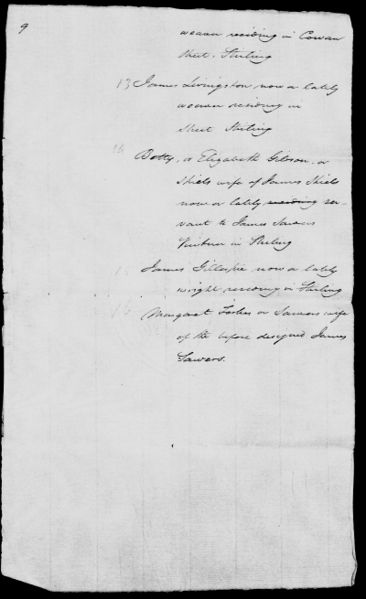 9
weaver residing in Cowan
Street, Stirling
13 James Livingston now or lately
weaver residing in
Street Stirling
14 Betty, or Elizabeth Gibson, or
Shiels wife of James Shiels
now or lately residing ser-
vant to James Sawers
in Stirling
15 James Gillespie now or lately
wright residing in Stirling
16 Margaret Forbes or Sawers wife
of the before designed James
Sawers.